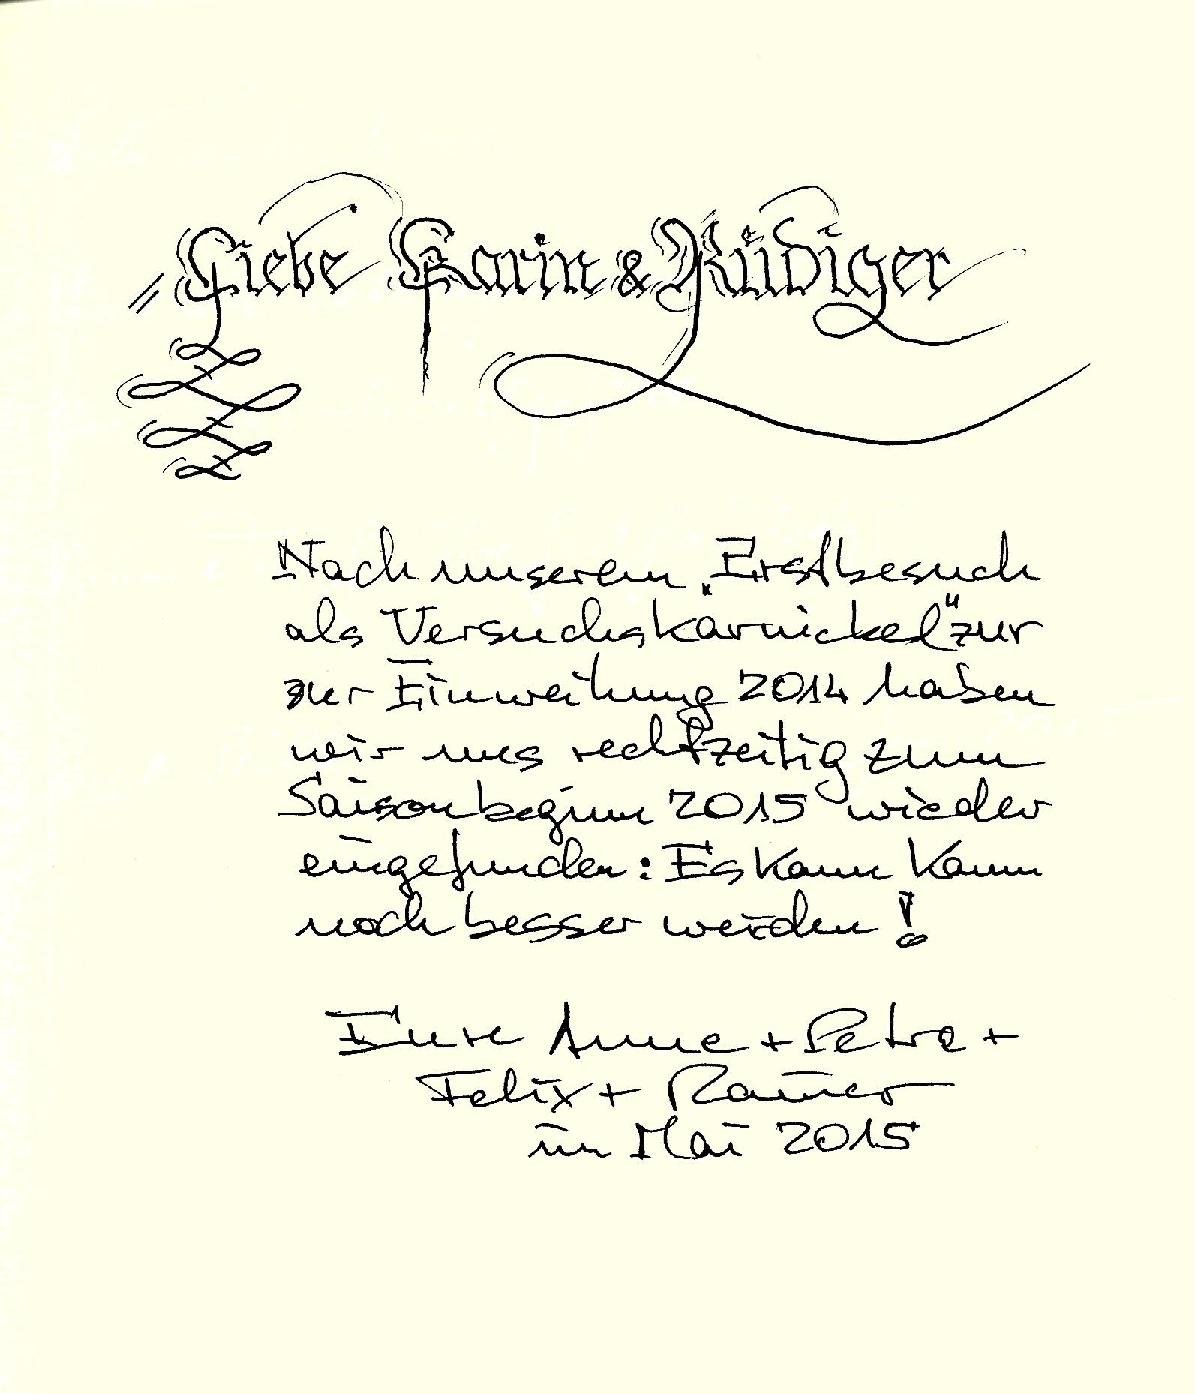 Liebe Karin & Rüdiger
Nach unserem „Erstbesuch
als Versuchskarnickel“ zur
zur Einweihung 2014 haben
wir uns rechtzeitig zum
Saisonbeginn 2015 wieder
eingefunden: Es kann kaum
noch besser werden!
Eure Anne + Petra +
Felix + Rainer
im Mai 2015